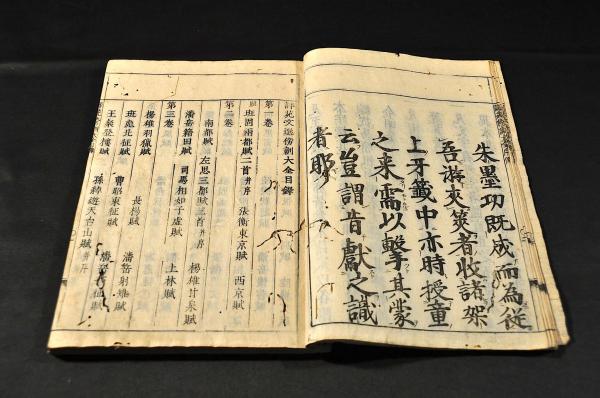 朱墨功既成而為従
吾游夾筴者收諸架
上牙籤中亦時授童
之来需以擊其蒙
云豈謂昔獻之識
者耶
評苑文選傍訓大全目録
第一巻
班固兩都賦二首 并序 張衡東京賦 西京賦
第二巻
南都賦 左思三都賦三首 并序 楊雄甘泉賦
潘岳籍田賦 司馬相如子虚賦 上林賦
第三巻
楊雄羽獵賦 長楊賦 潘岳射雉賦
班彪北征賦 曹昭東征賦 征賦
王粲登樓賦 孫綽遊天台山賦 并序